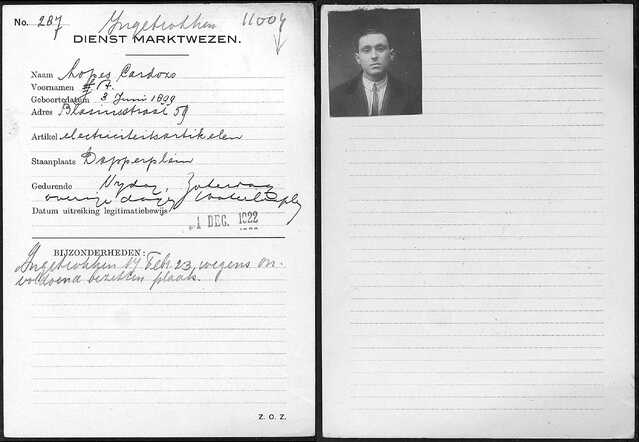 No. 287 Ingetrokken 11004
DIENST MARKTWEZEN.
Naam Lopes Cardozo
Voornamen A.
Geboortedatum 3 Juni 1899
Adres Blasiusstraat 59
Artikel electriciteitsartikelen
Staanplaats Dapperplein
Gedurende Vrijdag, Zaterdag
overige dagen Waterlooplein
Datum uitreiking legitimatiebewijs 1 DEC. 1922
BIJZONDERHEDEN:
Ingetrokken Feb. 23, wegens on-
voldoend bezetten plaats.
Z. O. Z.